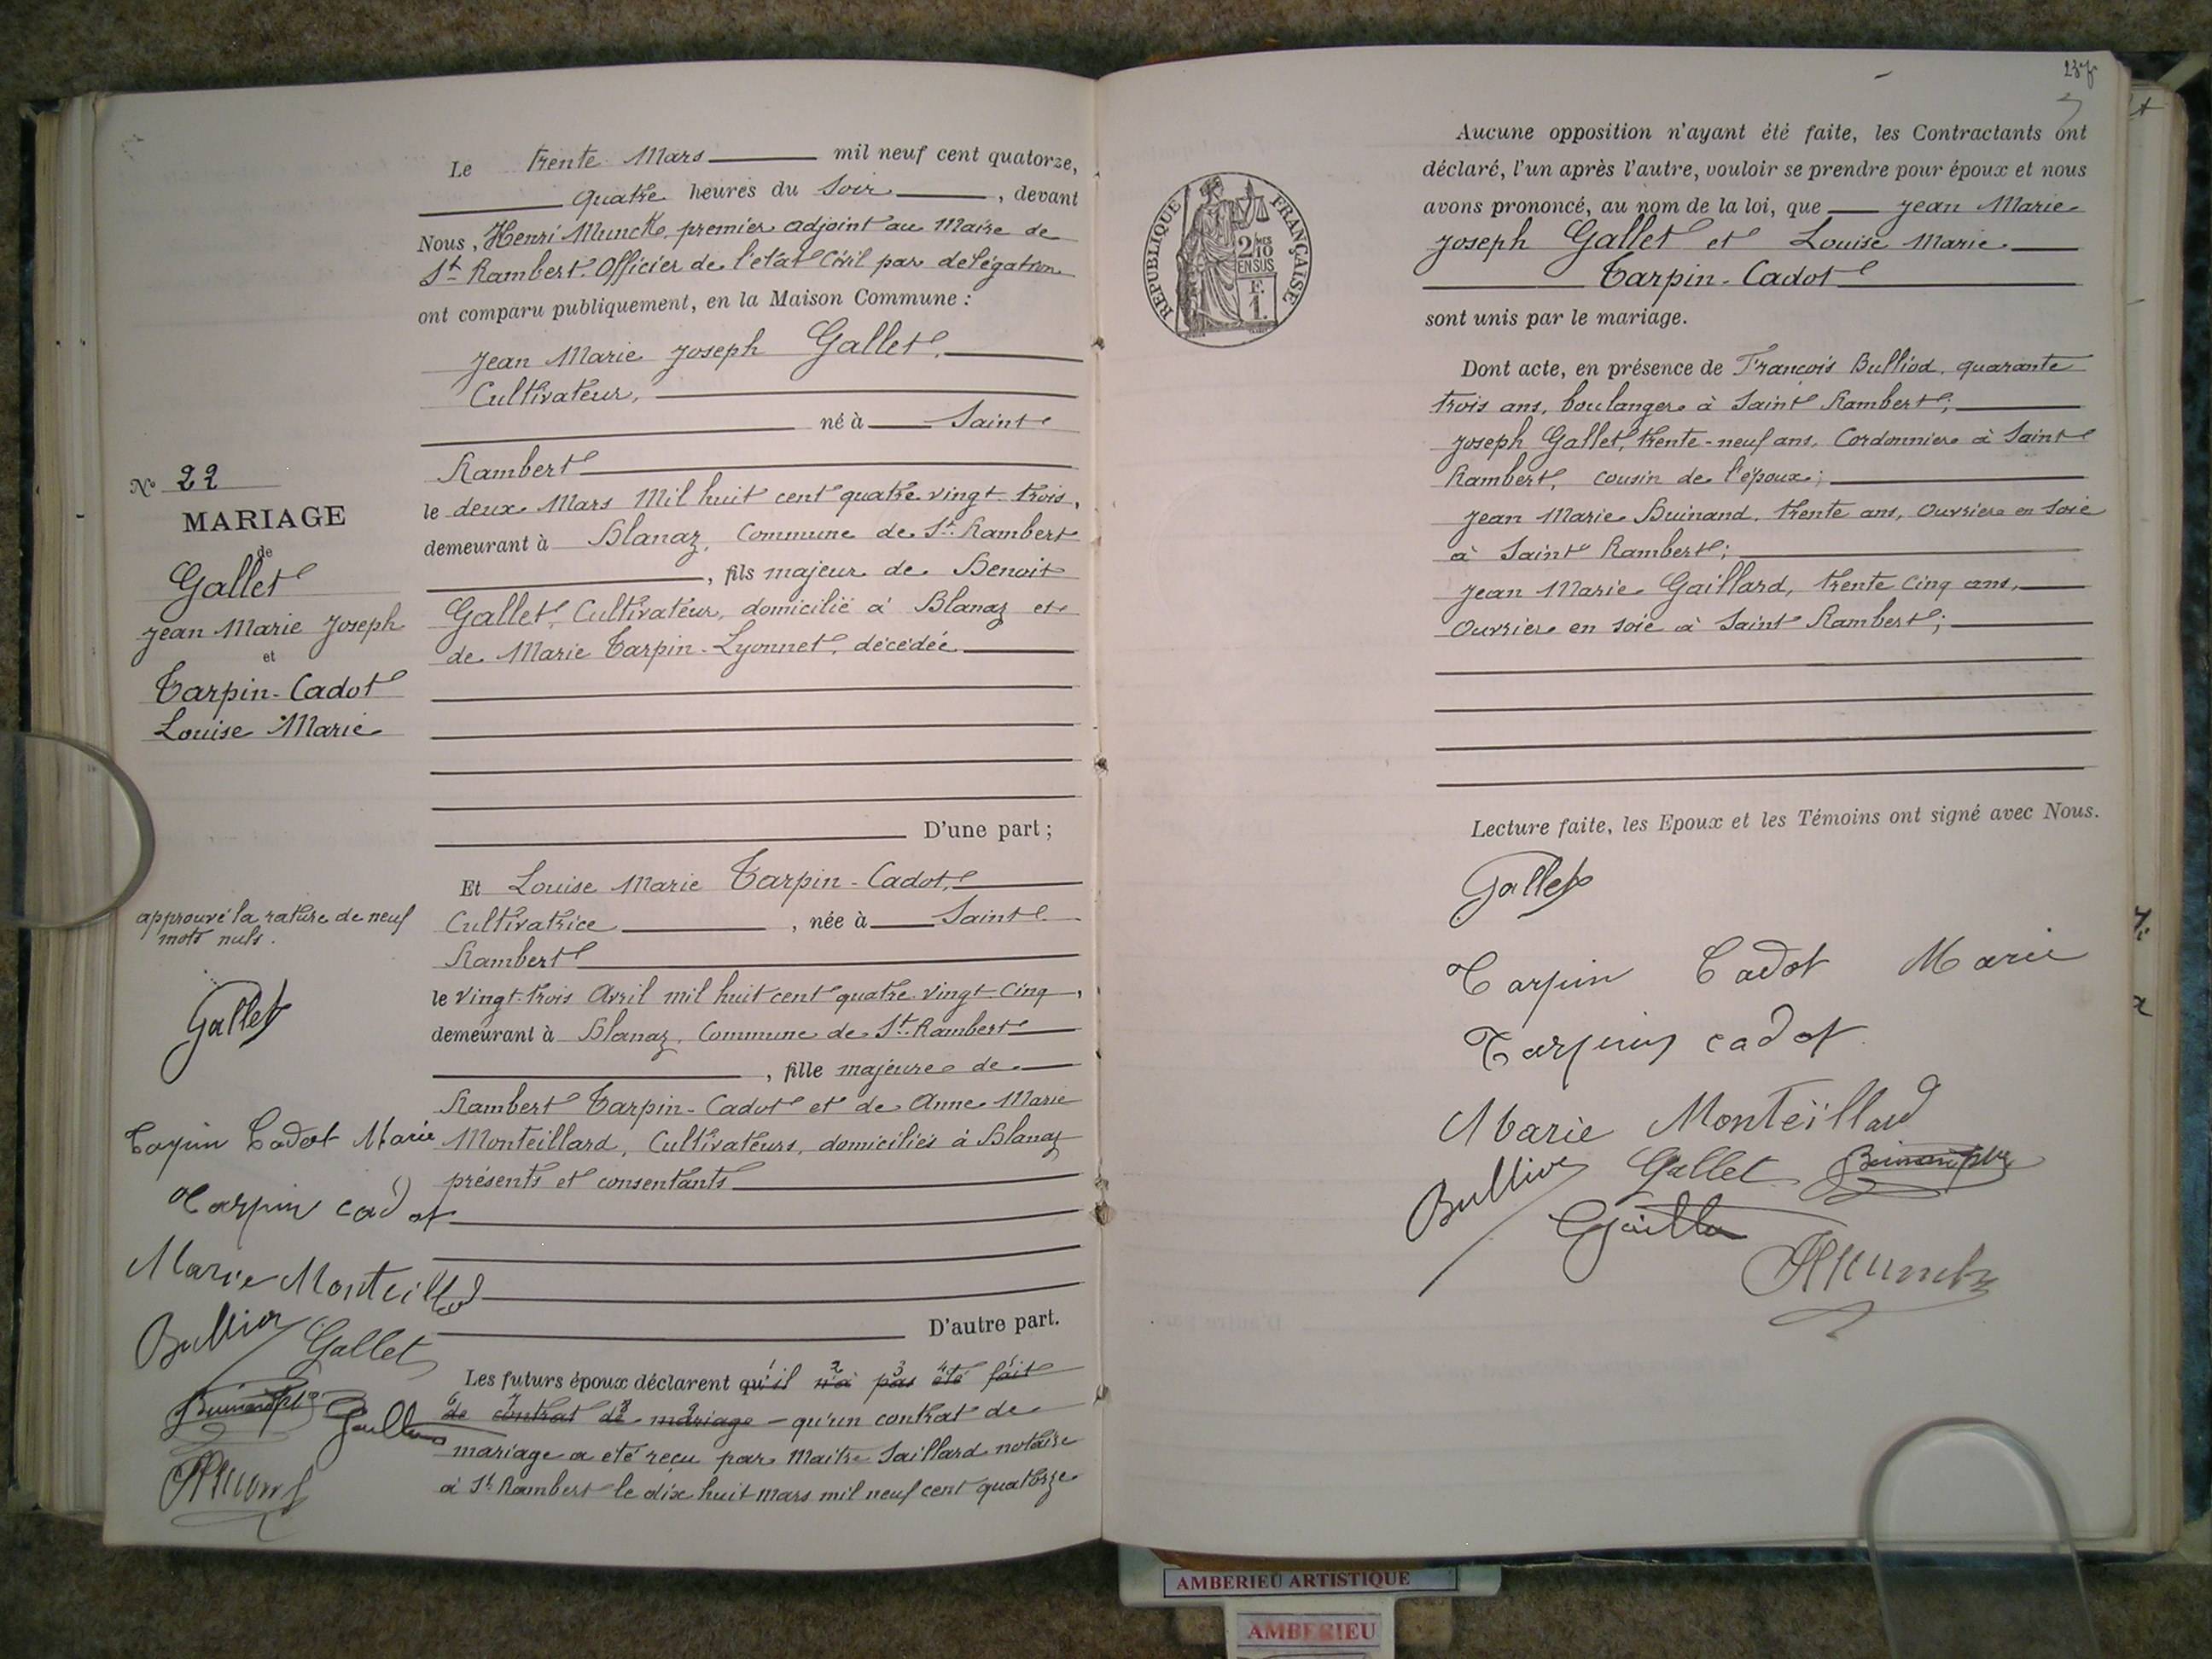 Le trente Mars mil neuf cent quatorze,
quatre heures du Soir, devant
Nous, Henri Munck, premier adjoint au Maire de
St Rambert. Officier de l'état Civil par delégation
ont comparu publiquement, en la Maison Commune :
Jean Marie Joseph Gallet,
Cultivateur,
né à Saint
Rambert
le deux Mars Mil huit cent quatre vingt trois,
demeurant à Blanaz, Commune de St. Rambert
, fils majeur de Benoit
Gallet, Cultivateur, domicilié à Blanaz et
de Marie Tarpin-Lyonnet, décédée
D'une part ;
Et Louise Marie Tarpin-Cadot,
Cultivatrice, née à Saint
Rambert
le vingt-trois Avril mil huit cent quatre-vingt-cinq,
demeurant à Blanaz, Commune de St. Rambert
, fille majeure de
Rambert Tarpin-Cadot et de Anne Marie
Monteillard, Cultivateurs, domiciliés à Blanaz
présents et consentants
D'autre part.
Les futurs époux déclarent qu'il n'a pas été fait
de contrat de mariage - qu'un contrat de
mariage a été reçu par Maitre Saillard notaire
à St Rambert le dix huit mars mil neuf cent quatorze
No 22
MARIAGE
de
Gallet
Jean Marie Joseph
et
Tarpin-Cadot
Louise Marie
approuvé la rature de neuf
mots nuls.
Gallet
Tarpin Cadot Marie
Tarpin cadot
Marie Monteillard
Gallet
237
RÉPUBLIQUE FRANÇAISE
2/10 MES
EN SUS
F.
1.
Aucune opposition n'ayant été faite, les Contractants ont
déclaré, l'un après l'autre, vouloir se prendre pour époux et nous
avons prononcé, au nom de la loi, que Jean Marie
Joseph Gallet et Louise Marie
Tarpin-Cadot
sont unis par le mariage.
Dont acte, en présence de François Bulliod, quarante
trois ans, boulanger à Saint Rambert;
Joseph Gallet, trente-neuf ans, Cordonnier à Saint
Rambert, cousin de l'époux;
Jean Marie Buinand, trente ans, Ouvrier en soie
à Saint Rambert;
Jean Marie Gaillard, trente cinq ans,
Ouvrier en soie à Saint Rambert;
Lecture faite, les Epoux et les Témoins ont signé avec Nous.
Gallet
Tarpin Cadot Marie
Tarpin cadot
Marie Monteillard
Gallet
AMBERIEU ARTISTIQUE
AMBERIEU